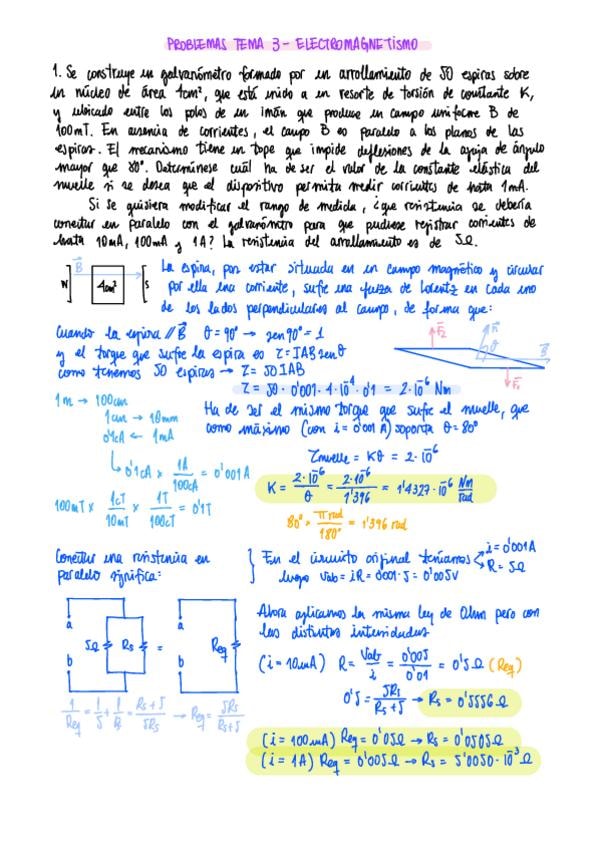 PROBLEMAS TEMA 3 - ELECTROMAGNETISMO
1. Se construye un galvanómetro formado por un arrollamiento de 50 espiras sobre
un núcleo de área 4cm², que está unido a un resorte de torsión de constante K,
y ubicado entre los polos de un imán que produce un campo uniforme B de
100mT. En ausencia de corrientes, el campo B es paralelo a los planos de las
espiras. El mecanismo tiene un tope que impide deflexiones de la aguja de ángulo
mayor que 80°. Determínese cuál ha de ser el valor de la constante elástica del
muelle si se desea que el dispositivo permita medir corrientes de hasta 1mA.
Si se quisiera modificar el rango de medida, ¿que resistencia se debería
conectar en paralelo con el galvanómetro para que pudiese registrar corrientes de
hasta 10mA, 100mA y 1A? La resistencia del arrollamiento es de 5Ω.
N B 4cm² S
La espira, por estar situada en un campo magnético y circular
por ella una corriente, sufre una fuerza de Lorentz en cada uno
de los lados perpendiculares al campo, de forma que:
Cuando la espira // B θ = 90° → sen 90° = 1
y el torque que sufre la espira es τ = IAB senθ
como tenemos 50 espiras → τ = 50 IAB
τ = 50 · 0'001 · 4 · 10⁻⁴ · 0'1 = 2 · 10⁻⁶ Nm
F₂ n θ B F₁
1m → 100cm
1cm → 10mm
0'1cA ← 1mA
↳ 0'1cA × 1A/100cA = 0'001A
100mT × 1cT/10mT × 1T/100cT = 0'1T
Ha de ser el mismo torque que sufre el muelle, que
como máximo (con i = 0'001 A) soporta θ = 80°
τmuelle = Kθ = 2 · 10⁻⁶
K = 2·10⁻⁶/θ = 2·10⁻⁶/1'396 = 1'4327 · 10⁻⁶ Nm/rad
80° × π rad/180° = 1'396 rad
Conectar una resistencia en
paralelo significa:
En el circuito original teníamos i = 0'001A
R = 5Ω
luego Vab = iR = 0'001 · 5 = 0'005V
a b 5Ω Rs = a b Req
1/Req = 1/5 + 1/R = Rs+5/5Rs → Req = 5Rs/Rs+5
Ahora aplicamos la misma ley de Ohm pero con
las distintas intensidades
(i = 10mA) R = Vab/i = 0'005/0'01 = 0'5Ω (Req)
0'5 = 5Rs/Rs+5 → Rs = 0'5556Ω
(i = 100mA) Req = 0'05Ω → Rs = 0'0505Ω
(i = 1A) Req = 0'005Ω → Rs = 5'0050 · 10⁻³ Ω